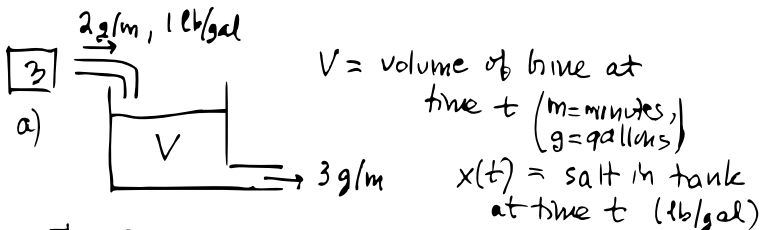 2g/m, 1 lb/gal
3
a)
V
3 g/m
V = volume of brine at
time t (m=minutes,
g=gallons)
x(t) = salt in tank
at time t (lb/gal)